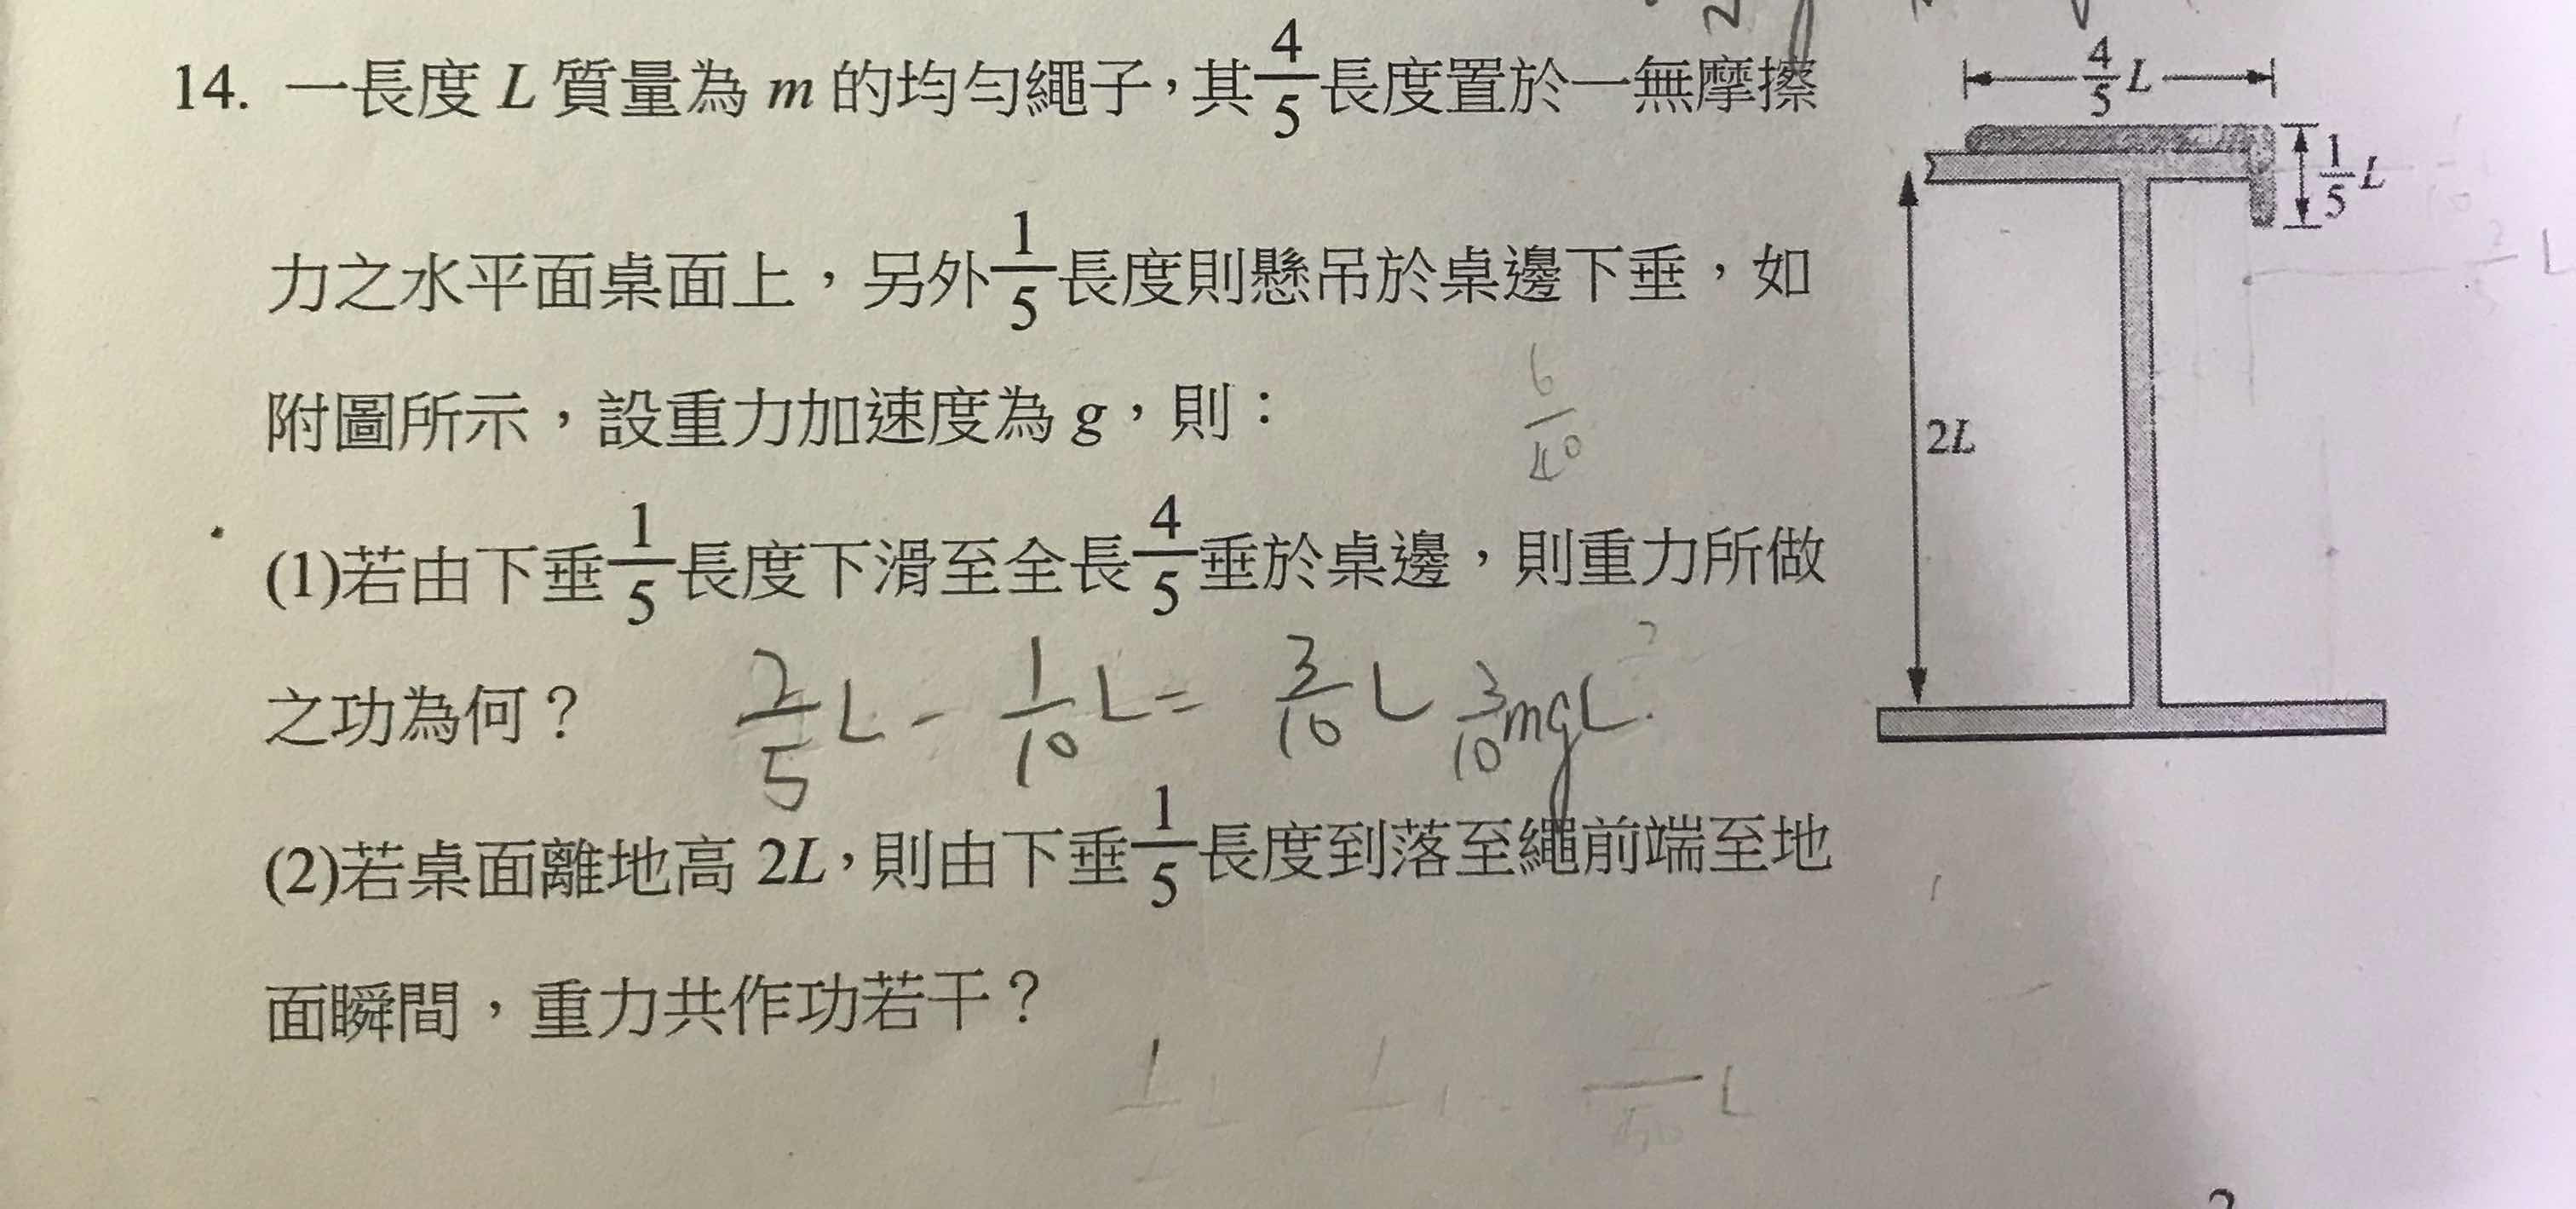 14. 一長度 L 質量為 m 的均勻繩子，其 4/5 長度置於一無摩擦
力之水平面桌面上，另外 1/5 長度則懸吊於桌邊下垂，如
附圖所示，設重力加速度為 g，則：
(1)若由下垂 1/5 長度下滑至全長 4/5 垂於桌邊，則重力所做
之功為何？
2/5 L - 1/10 L = 3/10 L 3/10 mgL.
(2)若桌面離地高 2L，則由下垂 1/5 長度到落至繩前端至地
面瞬間，重力共作功若干？
4/5 L
1/5 L
2L
6/40